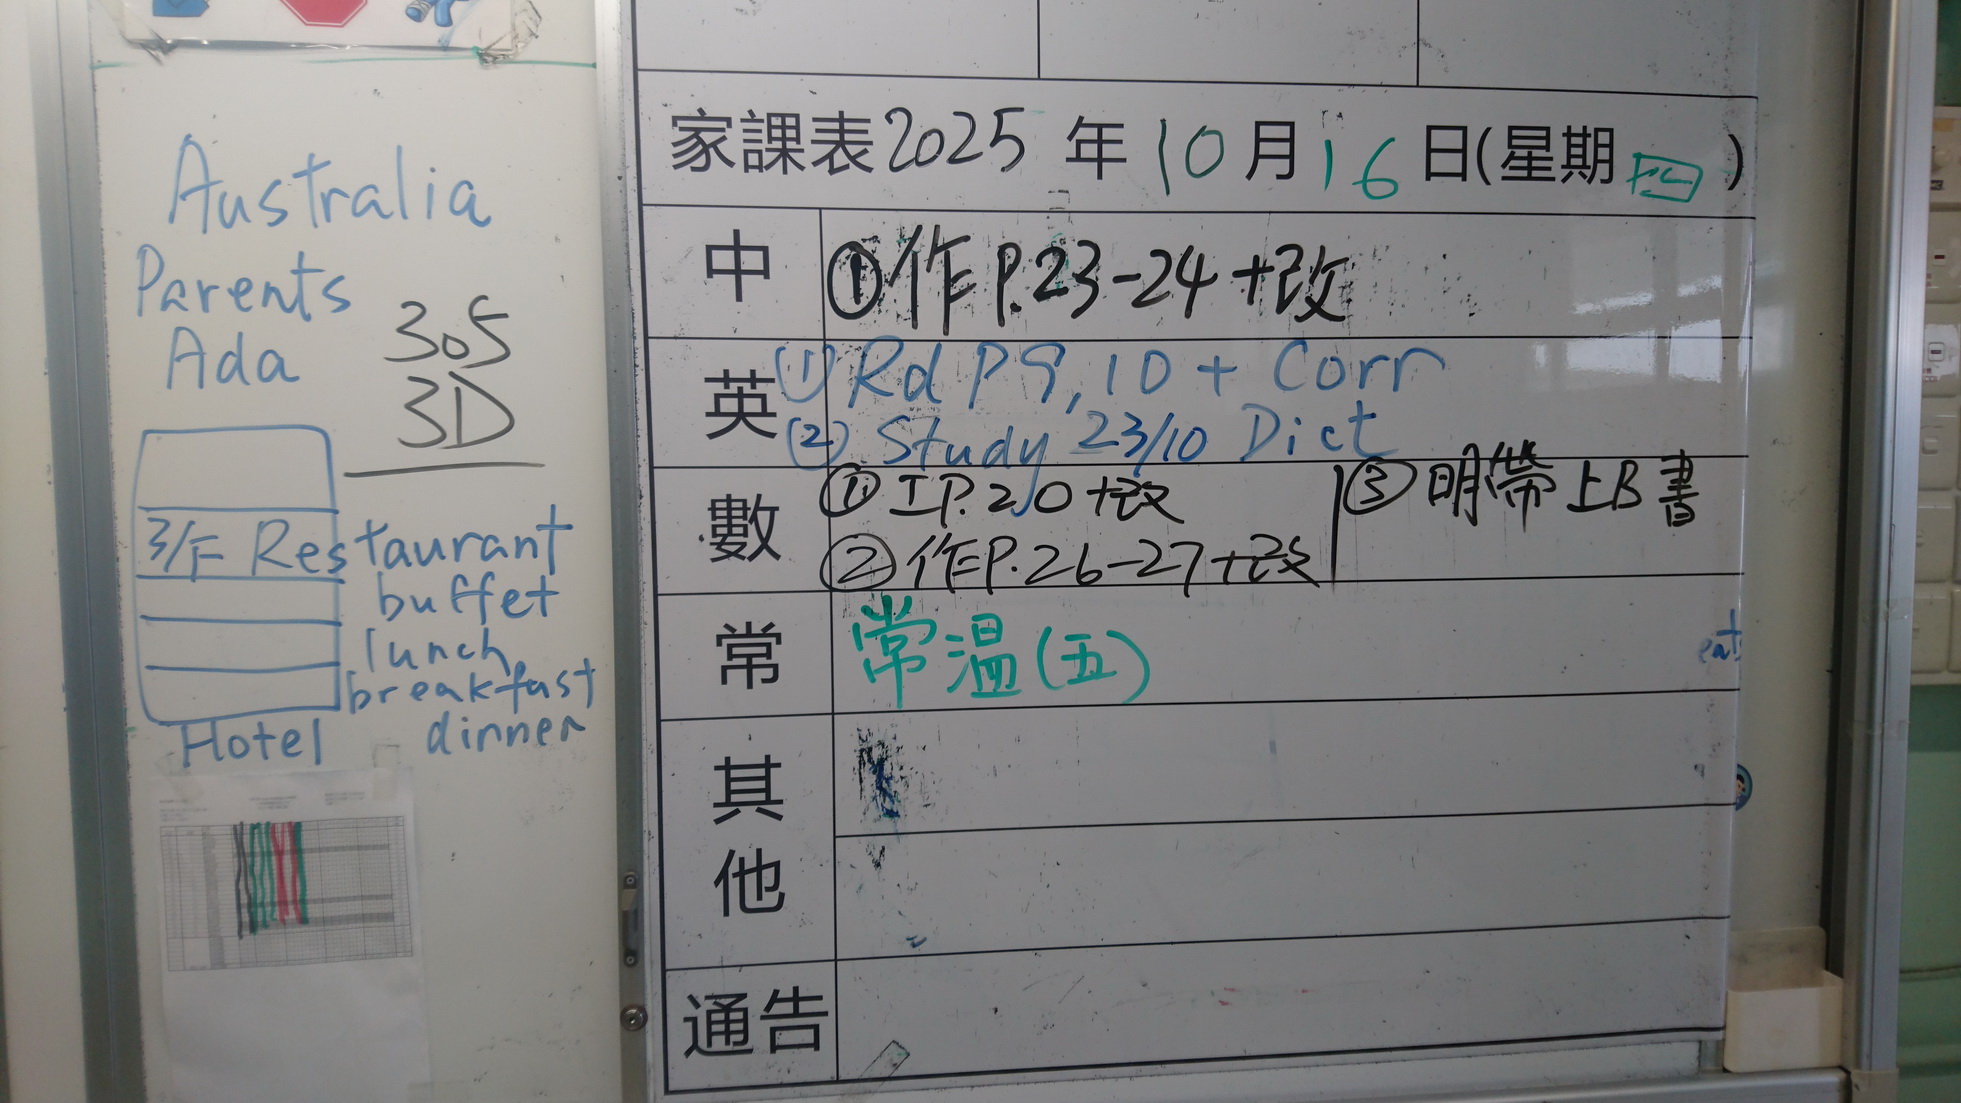 Australia
Parents
Ada
305
3D
3/F Restaurant
buffet
lunch
breakfast
dinner
Hotel
家課表2025年10月16日(星期四)
中
①作P.23-24+改
英
(1) Rd P9,10 + Corr
(2) Study 23/10 Dict
數
①工P.20+改
②作P.26-27+改
③明帶上B書
常
常溫(五)
eat
其他
通告